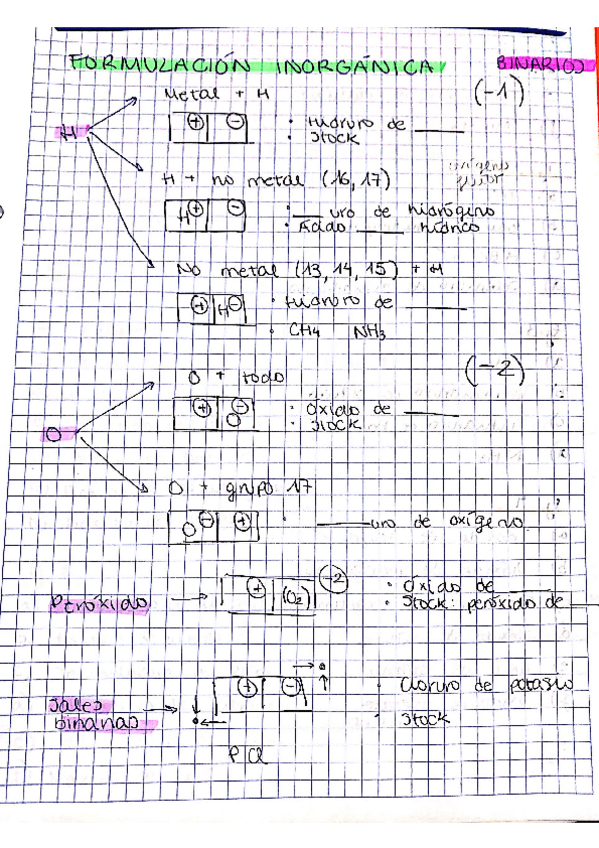 FORMULACIÓN INORGÁNICA BINARIOS
Metal + H (-1)
H
+ -
· Hidruro de ____
· Stock
H + no metal (16, 17)
H+ -
· ____ uro de hidrógeno
· Ácido ____ hídrico
No metal (13, 14, 15) + H
+ H-
· Hidruro de ____
· CH4 NH3
O + todo (-2)
+ - O
· Óxido de ____
· Stock
O
O + grupo 17
O- +
· ____uro de oxígeno
Peróxido → + (O2) -2
· Óxido de ____
· Stock: peróxido de ____
Sales binarias → + -
· Cloruro de potasio
· Stock
P Cl